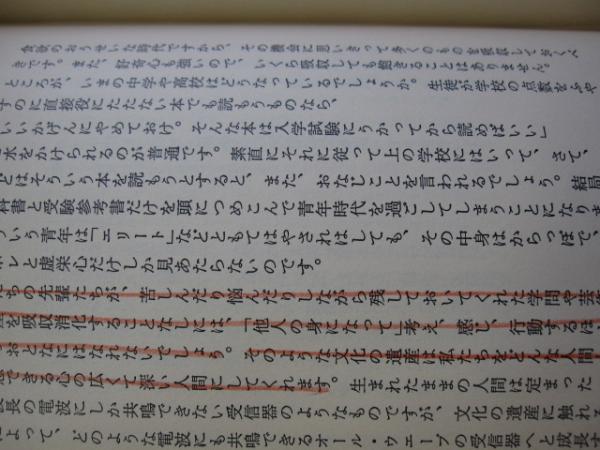 食欲のおうせいな時代ですから、その機会に思いきって多くのものを吸収しておくべ
きです。また、好奇心も強いので、いくら吸収しても飽きることはありません。
ところが、いまの中学や高校はどうなっているでしょうか。生徒が学校の点数をふや
すのに直接役にたたない本でも読もうものなら、
いいかげんにやめておけ。そんな本は入学試験にうかってから読めばいい」
水をかけられるのが普通です。素直にそれに従って上の学校にはいって、さて、
とはそういう本を読もうとすると、また、おなじことを言われるでしょう。結局
科書と受験参考書だけを頭につめこんで青年時代を過ごしてしまうことになりま
いう青年は「エリート」などともてはやされはしても、その中身はからっぽで、
レと虚栄心だけしか見あたらないのです。
ちの先輩たちが、苦しんだり悩んだりしながら残しておいてくれた学問や芸
を吸収消化することなしには、「他人の身になって」考え、感じ、行動するほ
おとなにはなれないでしょう。そのような文化の遺産は私たちをどんな人間
できる心の広くて深い人間にしてくれます。生まれたままの人間は定まった
長の電波にしか共鳴できない受信器のようなものですが、文化の遺産に触れる
よって、どのような電波にも共鳴できるオール・ウェーブの受信器へと成長す